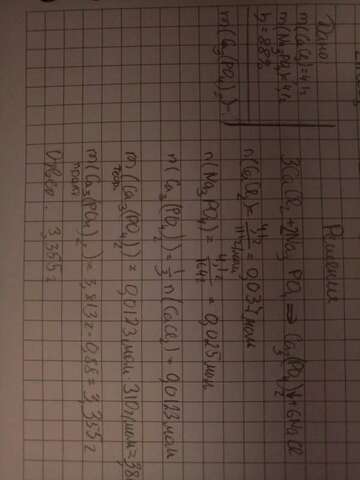 Дано
m(CaCl₂)=4,1г
m(Na₃PO₄)=4,1г
η=88%
m(Ca₃(PO₄)₂)-?
Решение
3CaCl₂+2Na₃PO₄⇒Ca₃(PO₄)₂↓+6NaCl
n(CaCl₂)=4,1г/111г/моль=0,037моль
n(Na₃PO₄)=4,1г/164г=0,025моль
n(Ca₃(PO₄)₂)=1/3n(CaCl₂)=0,0123моль
m теор(Ca₃(PO₄)₂)=0,0123моль·310г/моль=3,8
m практ(Ca₃(PO₄)₂)=3,813г·0,88=3,355г
Ответ: 3,355г